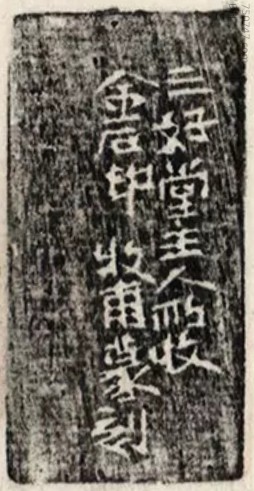 三好堂主人所收
金石印 收甫篆刻